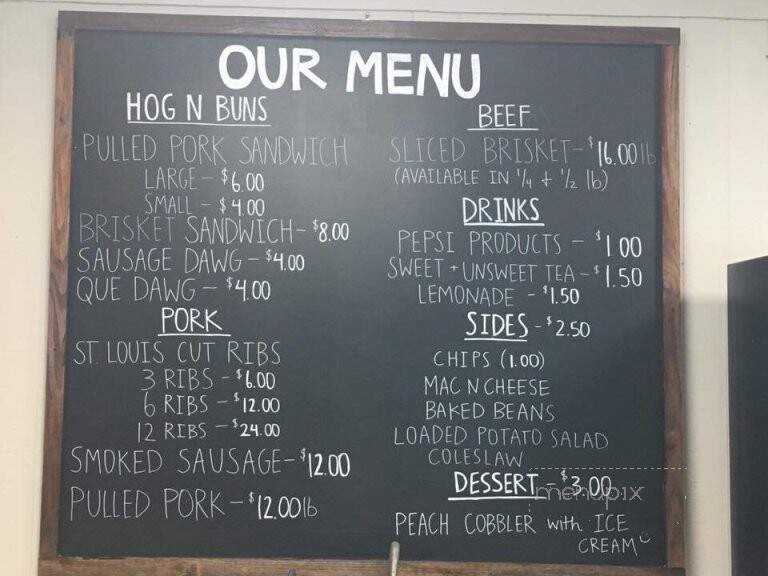 OUR MENU
HOG N BUNS
PULLED PORK SANDWICH
LARGE - $6.00
SMALL - $4.00
BRISKET SANDWICH - $8.00
SAUSAGE DAWG - $4.00
QUE DAWG - $4.00
PORK
ST. LOUIS CUT RIBS
3 RIBS - $6.00
6 RIBS - $12.00
12 RIBS - $24.00
SMOKED SAUSAGE - $12.00
PULLED PORK - $12.00lb
BEEF
SLICED BRISKET - $16.00lb
(AVAILABLE IN 1/4 + 1/2 lb)
DRINKS
PEPSI PRODUCTS - $1.00
SWEET + UNSWEET TEA - $1.50
LEMONADE - $1.50
SIDES - $2.50
CHIPS (1.00)
MAC N CHEESE
BAKED BEANS
LOADED POTATO SALAD
COLESLAW
DESSERT - $3.00
menupix
PEACH COBBLER with ICE
CREAM